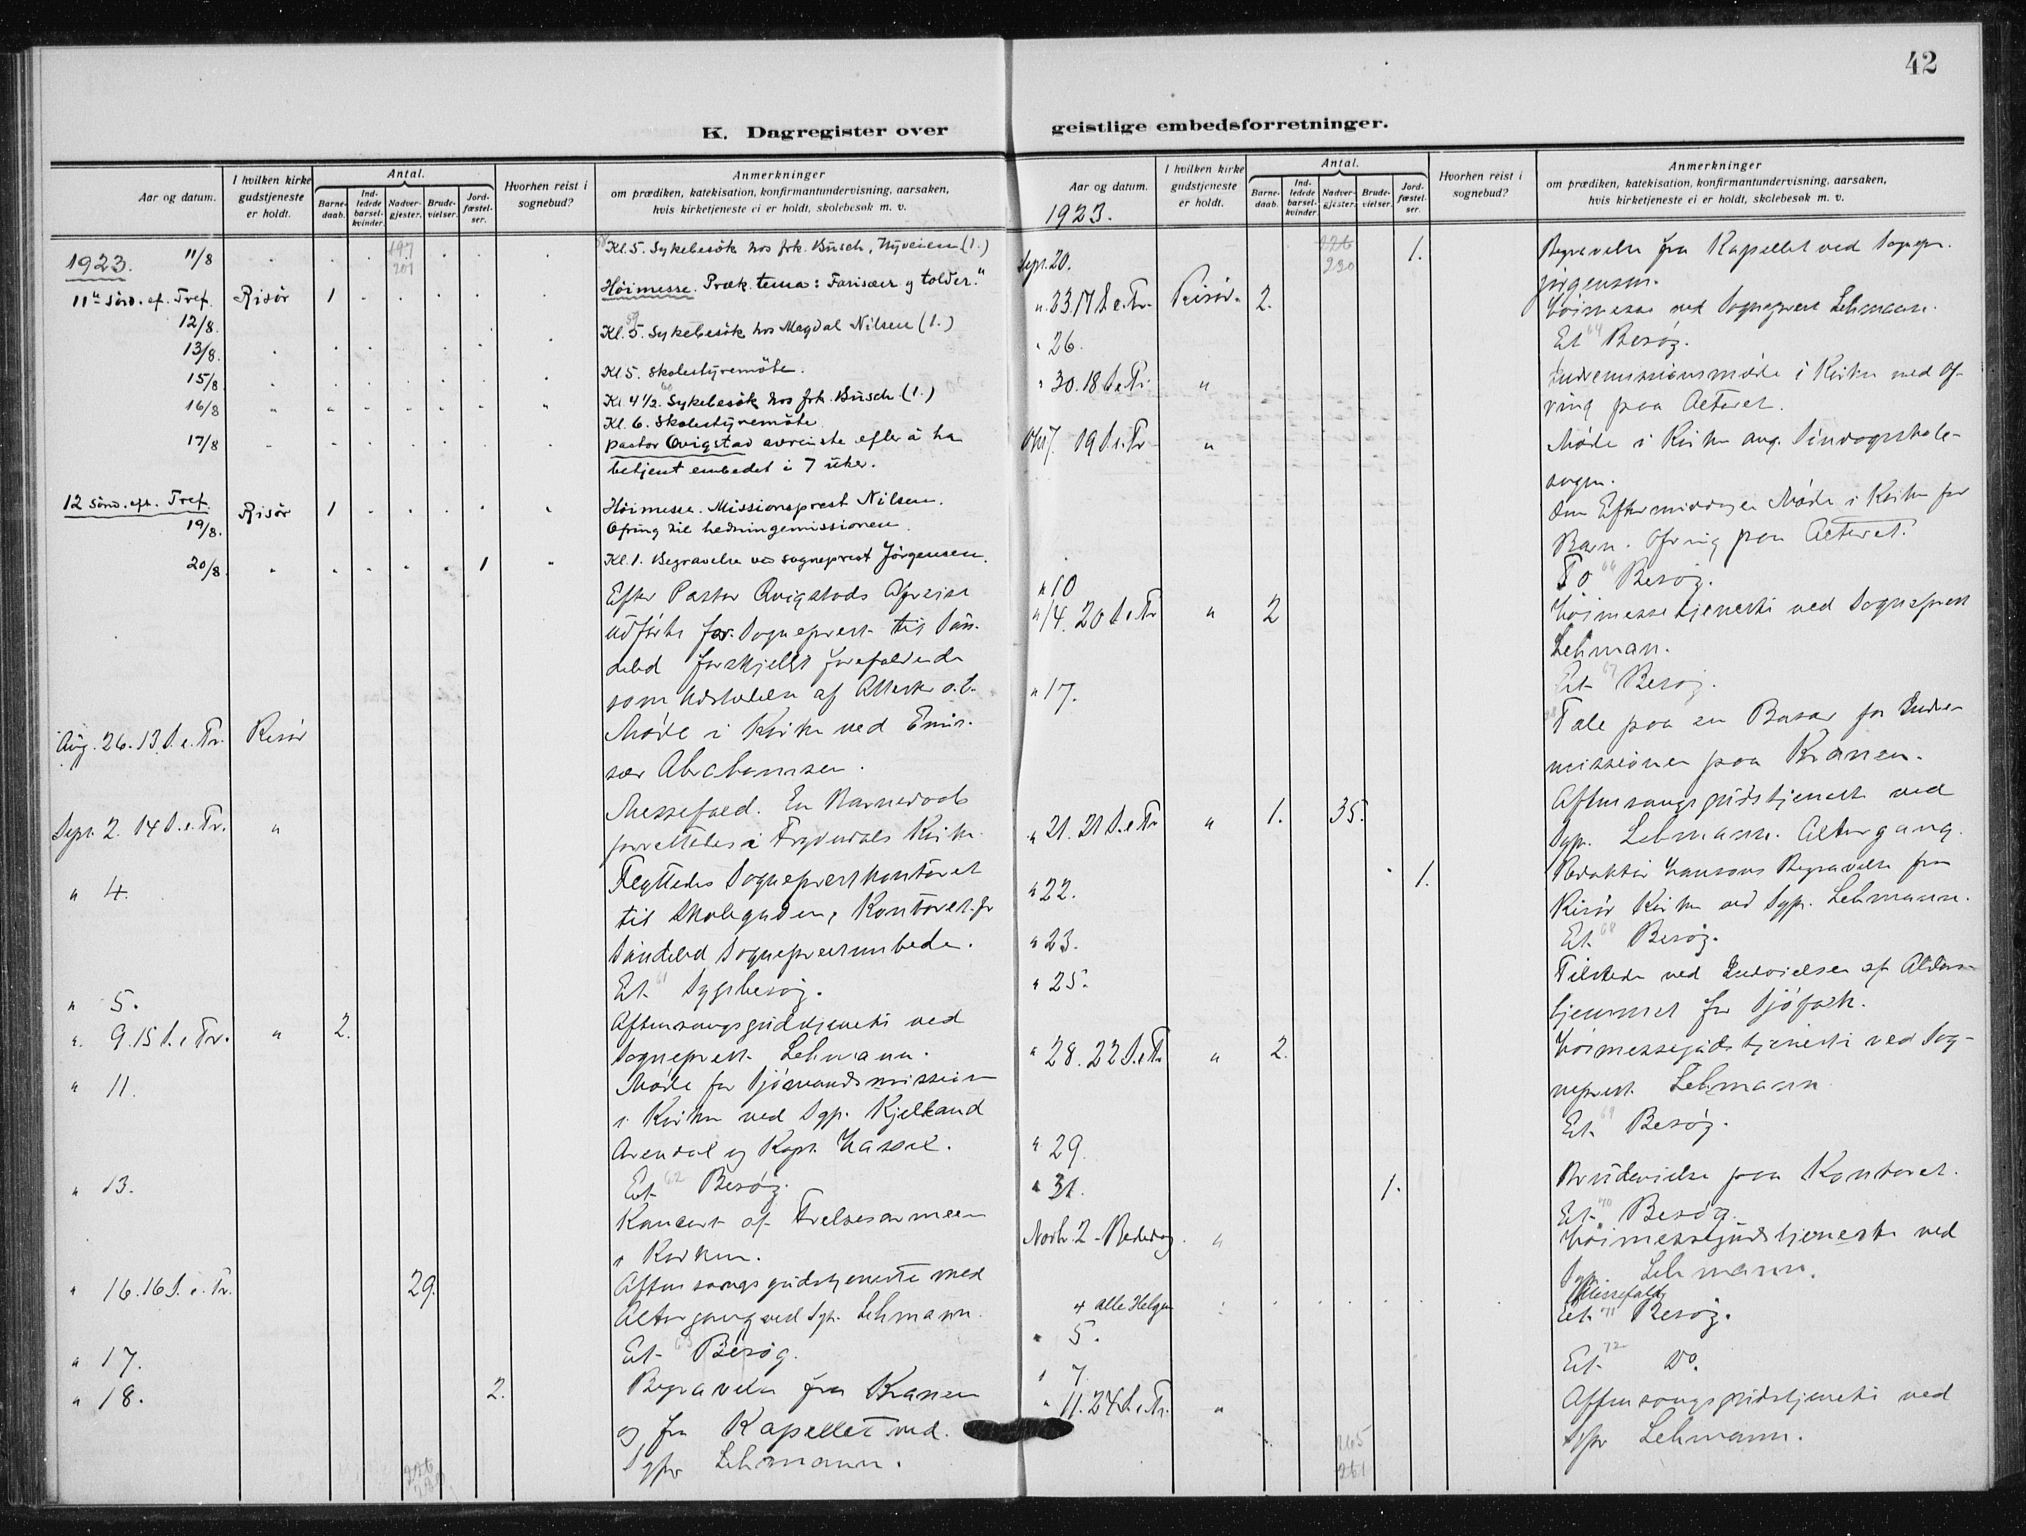 42
K. Dagregister over geistlige embedsforretninger.
Aar og datum. I hvilken kirke gudstjeneste er holdt. Antal. Barne-daab. Ind-ledede barsel-kvinder. Nadver-gjester. Brude-vielser. Jord-fæstel-ser. Hvorhen reist i sognebud? Anmerkninger om prædiken, katekisation, konfirmantundervisning, aarsaken, hvis kirketjeneste ei er holdt, skolebesøk m. v.
1923. 11/8 197 201 Kl. 5. Sykebesök hos frk. Busch, Nyveien (1.)
11te Sönd. ef. Tref. Risör 1 Höimesse. Præk. tema: Farisæer og tolder."
12/8. 59 Kl. 5. Sykebesök hos Magdal Nilsen (1.)
13/8 Kl 5. Skolestyremöte.
15/8 60 Kl 4 1/2. Sykebesök hos frk. Busch (1.)
16/8 Kl. 6. Skolestyremöte
17/8 Pastor Qvigstad avreiste efter å ha
betjent embedet i 7 uker.
12 Sönd. eft. Tref. Risör 1 Höimesse. Missionsprest Nilsen.
19/8. Ofring til hedningemissionen.
20/8. 1 Kl. 1. Begravelse ved sogneprest Jörgensen.
Efter Pastor Qvigstads Afreise
udförte Sogneprest til Sön-
deled forskjelligt forefaldende
som Udstedelse af Attester o.l.
Aug. 26. 13. S. e. Tr. Risör Möde i Kirken ved Emis-
sær Abrahamsen.
Sept. 2. 14 S. e. Tr. " Messefald. En Barnedaab
forrettedes i Frydendals Kirke.
" 4. Flyttedes Sogneprestkontoret
til Skolegaden, Kontoret for
Söndeled Sogneprestembede.
" 5. Et 61 Sygebesög.
" 9. 15 S. e. Tr. " 2. Aftensangsgudstjeneste ved
Sogneprest Lehmann.
" 11. Möde for Sjömandsmission
i Kirken ved Sgpr. Kjelland
Arendal og Kapt. Hassel.
" 13. Et 62 Besög.
Koncert af Frelsesarmeen
i Kirken.
" 16. 16 S. e. Tr. 29. Aftensangsgudstjeneste med
Altergang ved Sgpr. Lehmann.
" 17. Et 63 Besög.
" 18. 2. Begravelse fra Kranen
og fra Kapellet ved
226 230 Sgpr Lehmann.
Aar og datum. I hvilken kirke gudstjeneste er holdt. Antal. Barne-daab. Ind-ledede barsel-kvinder. Nadver-gjester. Brude-vielser. Jord-fæstel-ser. Hvorhen reist i sognebud? Anmerkninger om prædiken, katekisation, konfirmantundervisning, aarsaken, hvis kirketjeneste ei er holdt, skolebesøk m. v.
1923.
Sept. 20. 226 230 1. Begravelse fra Kapellet ved Sognepr.
Jörgensen.
" 23. 17 S. e. Tr. Risör. 2. Höimesse ved Sogneprest Lehmann.
" 26. Et 64 Besög.
" 30. 18 S. e. Tr. " Indremissionsmöde i Kirken med Of-
ring paa Alteret.
Okt 7. 19 S. e. Tr " Möde i Kirken ang. Söndagsskole-
sagen.
Om Eftermiddagen Möde i Kirken for
Barn. Ofring paa Alteret.
" 10 To 66 Besög.
" 14. 20 S. e. Tr " 2 Höimessetjeneste ved Sogneprest
Lehman.
" 17. Et 67 Besög.
Tale paa en Basar for Indre-
missionen paa Kranen.
" 21. 21 S. e. Tr " 1. 35. Aftensangsgudstjeneste ved
Sgpr. Lehmann. Altergang.
" 22. 1. Redaktör Hansens Begravelse fra
Risör Kirke ved Sgpr. Lehmann.
" 23. Et 68 Besög.
" 25. Tilstede ved Indvielsen af Alders-
hjemmet for Sjöfolk.
" 28. 22 S. e. Tr " 2. Höimessegudstjeneste ved Sog-
neprest Lehmann
" 29. Et 69 Besög.
" 31. 1. Brudevielse paa Kontoret.
Et 70 Besög.
Novbr. 2 - Bededag. " Höimessegudstjeneste ved
Sgpr. Lehmann.
4 Alle Helgen Messefald
" 5. Et 71 Besög.
" 7. Et 72 Do.
" 11. 24 S. e. Tr. " Aftensangsgudstjeneste ved
265 261 Sgpr Lehmann.